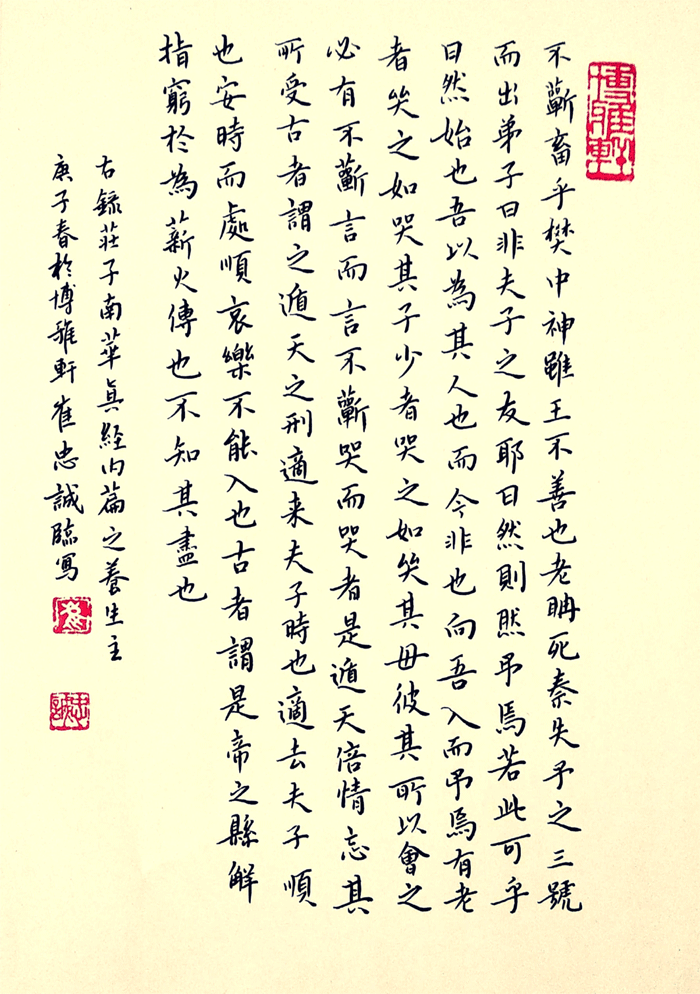 博雅軒
不蘄畜乎樊中神雖王不善也老聃死秦失予之三號
而出弟子曰非夫子之友耶曰然則然弔焉若此可乎
曰然始也吾以為其人也而今非也向吾入而弔焉有老
者哭之如哭其子少者哭之如哭其母彼其所以會之
必有不蘄言而言不蘄哭而哭者是遁天倍情忘其
所受古者謂之遁天之刑適来夫子時也適去夫子順
也安時而處順哀樂不能入也古者謂是帝之縣解
指窮於為薪火傳也不知其盡也
右錄莊子南華真經内篇之養生主
庚子春於博雅軒崔忠誠臨寫
忠誠